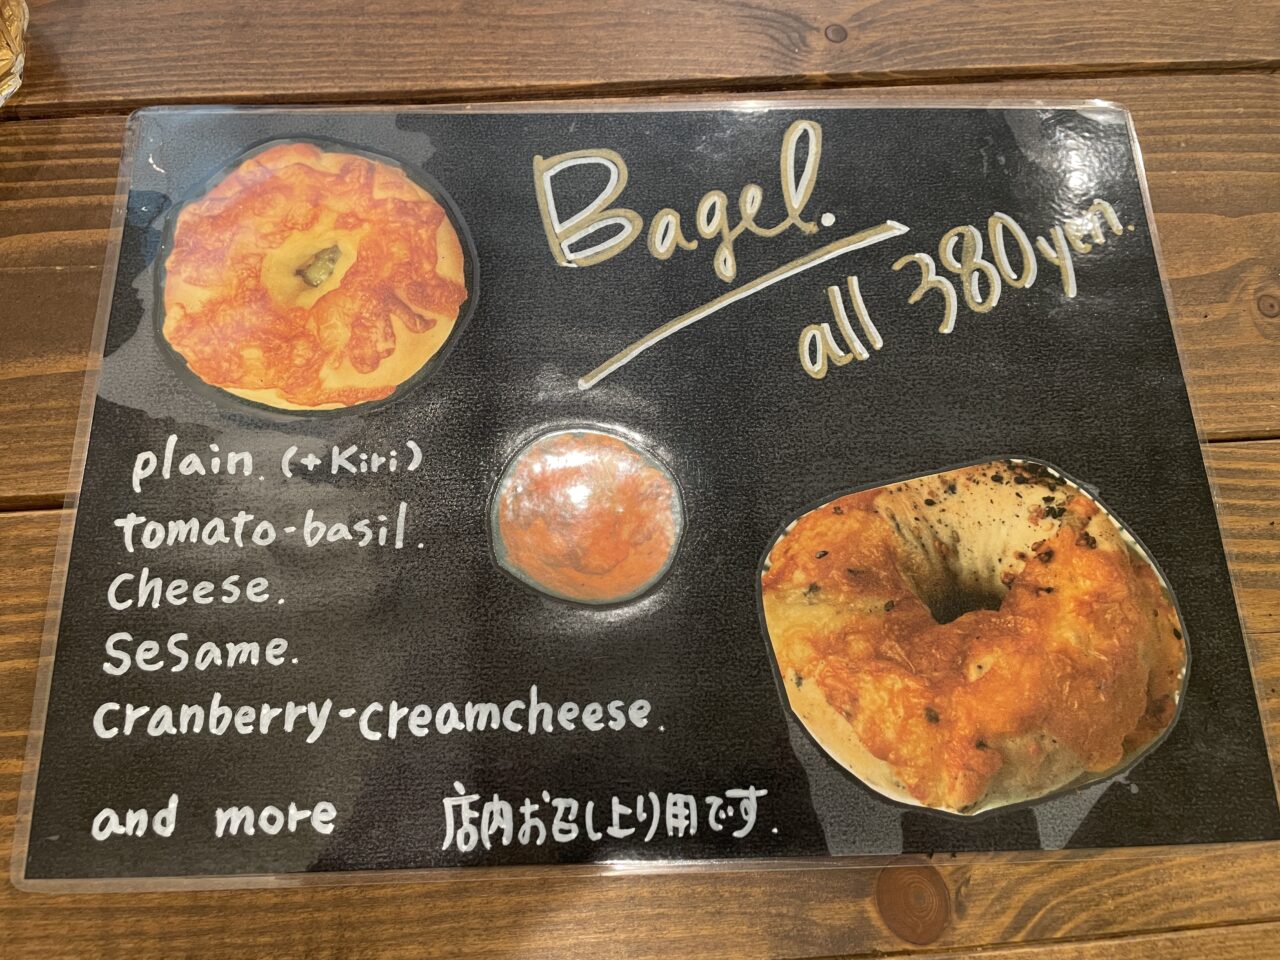 Bagel.
all 380yen.
plain. (+Kiri)
tomato-basil.
cheese.
Sesame.
cranberry-creamcheese.
and more
店内お召し上り用です.